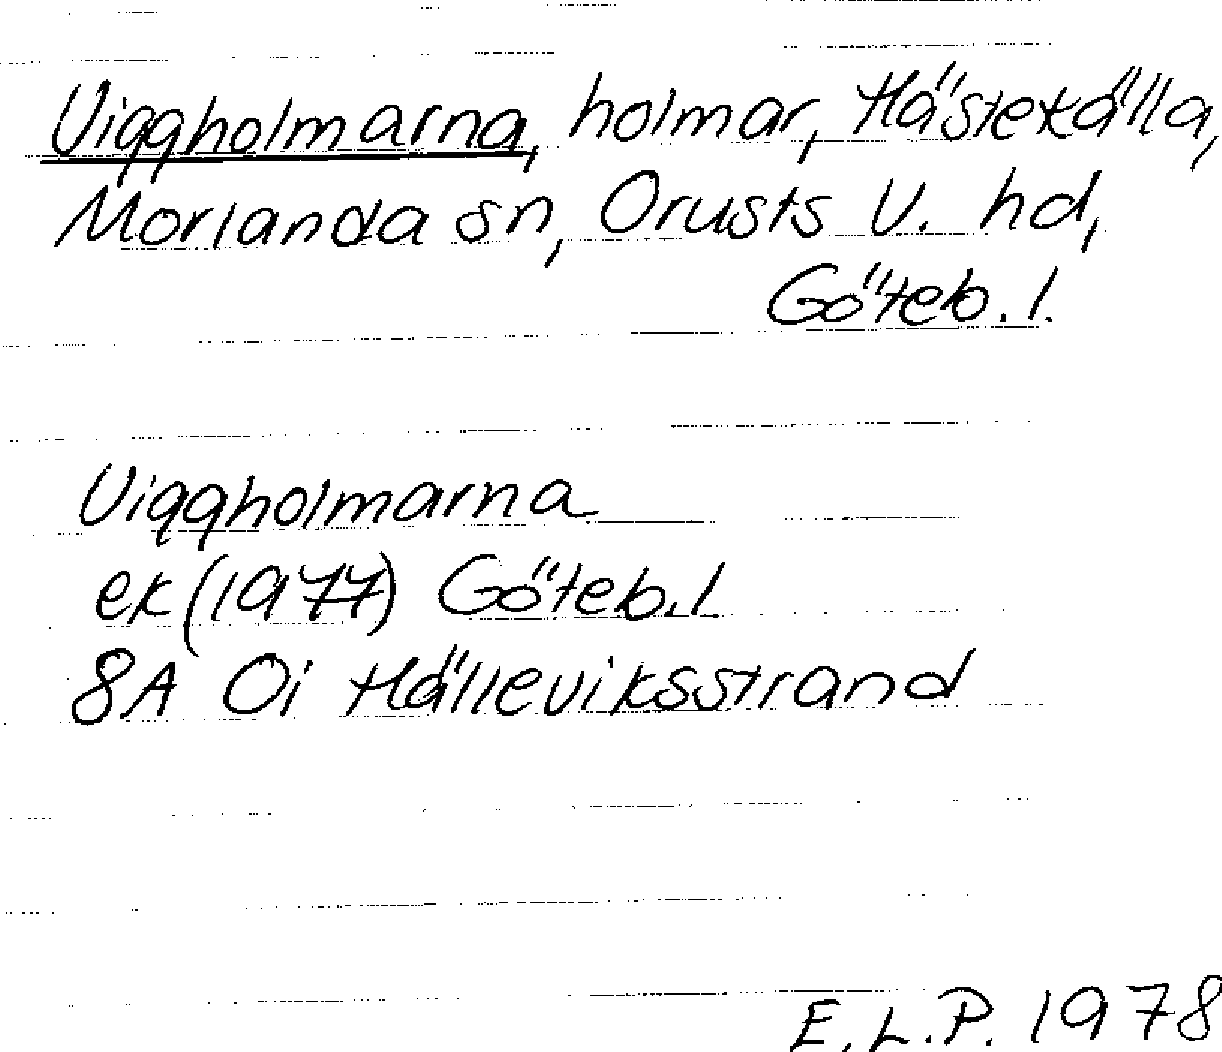 Viggholmarna, holmar, Hästekälla,
Morlanda sn, Orusts V. hd,
Göteb. l.
Viggholmarna
ek (1977) Göteb. l
8A 0i Hälleviksstrand
E. L. P. 1978